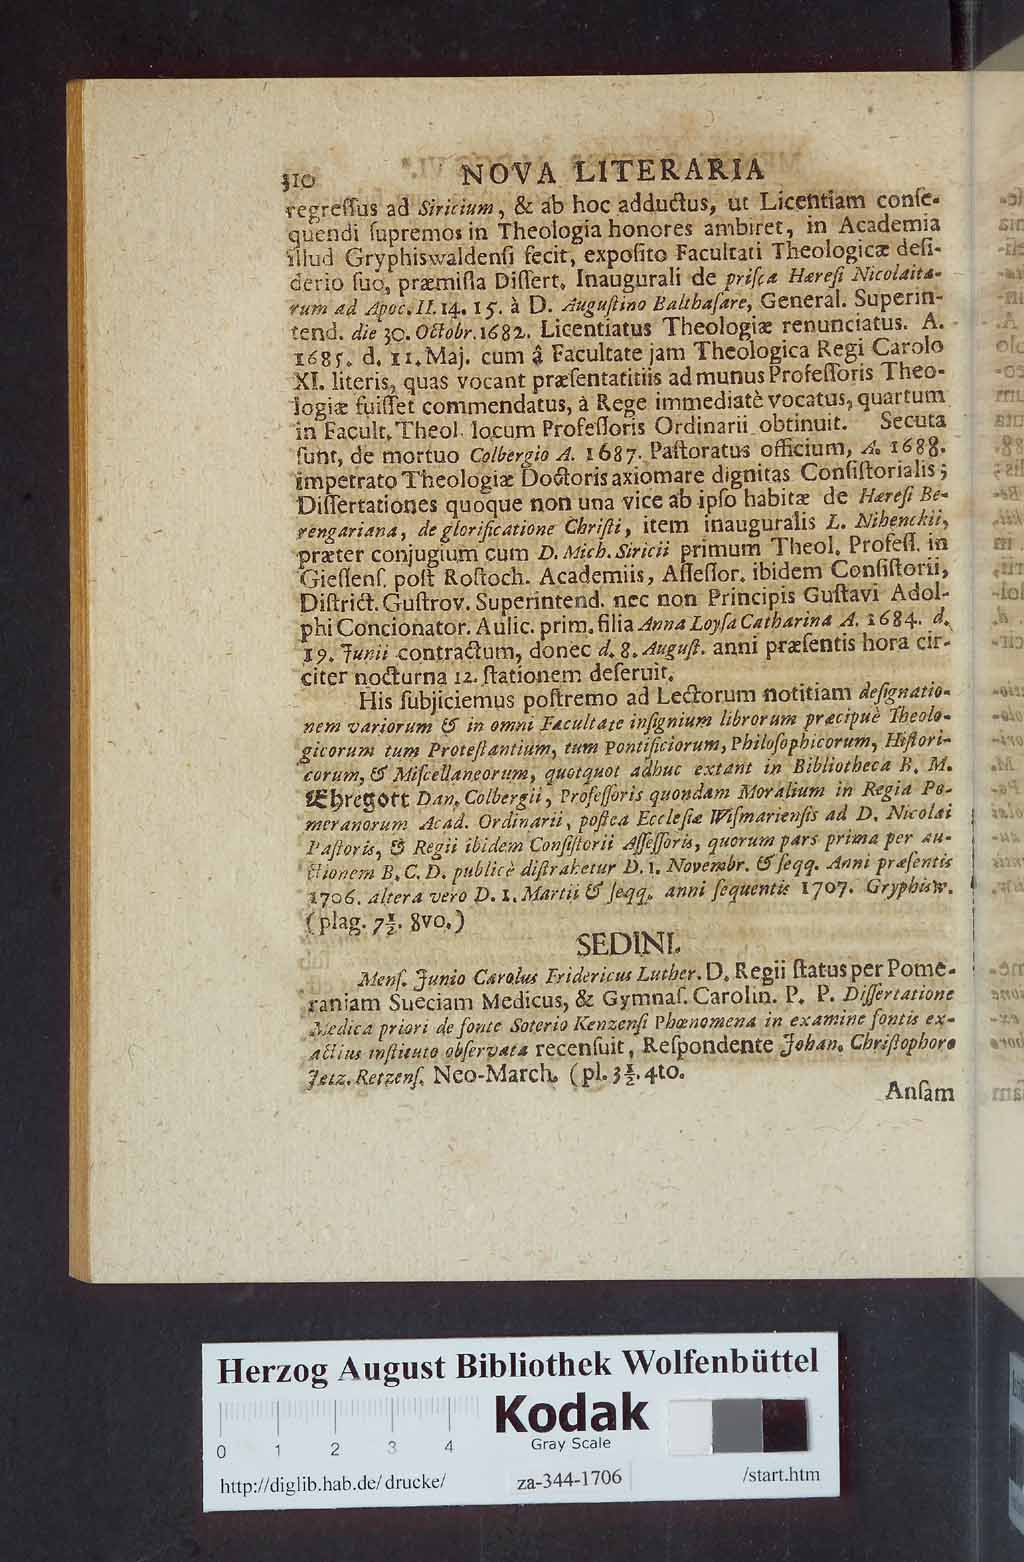 310 NOVA LITERARIA
regreſſus ad Siricium, & ab hoc adductus, ut Licentiam conſe-
quendi ſupremos in Theologia honores ambiret, in Academia
illud Gryphiswaldenſi fecit, expoſito Facultati Theologicæ deſi-
derio ſuo, præmiſſa Diſſert. Inaugurali de priſca Hæreſi Nicolaita-
rum ad Apoc. II. 14. 15. à D. Auguſtino Balthaſare, General. Superin-
tend. die 30. Octobr. 1682. Licentiatus Theologiæ renunciatus. A.
1685. d. 11. Maj. cum â Facultate jam Theologica Regi Carolo
XI. literis, quas vocant præſentatitiis ad munus Profeſſoris Theo-
logiæ fuiſſet commendatus, à Rege immediatè vocatus, quartum
in Facult. Theol. locum Profeſſoris Ordinarii obtinuit. Secuta
ſunt, de mortuo Colbergio A. 1687. Paſtoratus officium, A. 1688.
impetrato Theologiæ Doctoris axiomare dignitas Conſiſtorialis;
Diſſertationes quoque non una vice ab ipſo habitæ de Hæreſi Be-
rengariana, de glorificatione Chriſti, item inauguralis L. Nihenckii,
præter conjugium cum D. Mich. Siricii primum Theol. Profeſſ. in
Gieſſenſ. poſt Roſtoch. Academiis, Aſſeſſor. ibidem Conſiſtorii,
Diſtrict. Guſtrov. Superintend. nec non Principis Guſtavi Adol-
phi Concionator. Aulic. prim. filia Anna Loyſa Catharina A. 1684. d.
19. Junii contractum, donec d. 8. Auguſt. anni præſentis hora cir-
citer nocturna 12. ſtationem deſeruit.
His ſubjiciemus poſtremo ad Lectorum notitiam deſignatio-
nem variorum & in omni Facultate inſignium librorum præcipuè Theolo-
gicorum tum Proteſtantium, tum Pontificiorum, Philoſophicorum, Hiſtori-
corum, & Miſcellaneorum, quotquot adhuc extant in Bibliotheca B. M.
Ehregott Dan. Colbergii, Profeſſoris quondam Moralium in Regia Po-
meranorum Acad. Ordinarii, poſtea Eccleſiæ Wiſmarienſis ad D. Nicolai
Paſtoris, & Regii ibidem Conſiſtorii Aſſeſſoris, quorum pars prima per au-
ctionem B. C. D. publicè diſtrahetur D. 1. Novembr. & ſeqq. Anni præſentis
1706. altera vero D. 1. Martii & ſeqq. anni ſequentis 1707. Gryphisw.
(plag. 7½. 8vo.)
SEDINI.
Menſ. Junio Carolus Fridericus Luther. D. Regii ſtatus per Pome-
raniam Sueciam Medicus, & Gymnaſ. Carolin. P. P. Diſſertatione
Medica priori de fonte Soterio Kenzenſi Phœnomena in examine fontis ex-
actius inſtituto obſervata recenſuit, Reſpondente Johan. Chriſtophoro
Jetz. Retzenſ. Neo-March. (pl. 3½. 4to.
Anſam
Herzog August Bibliothek Wolfenbüttel
Kodak
Gray Scale
0 1 2 3 4
http://diglib.hab.de/drucke/ za-344-1706 /start.htm